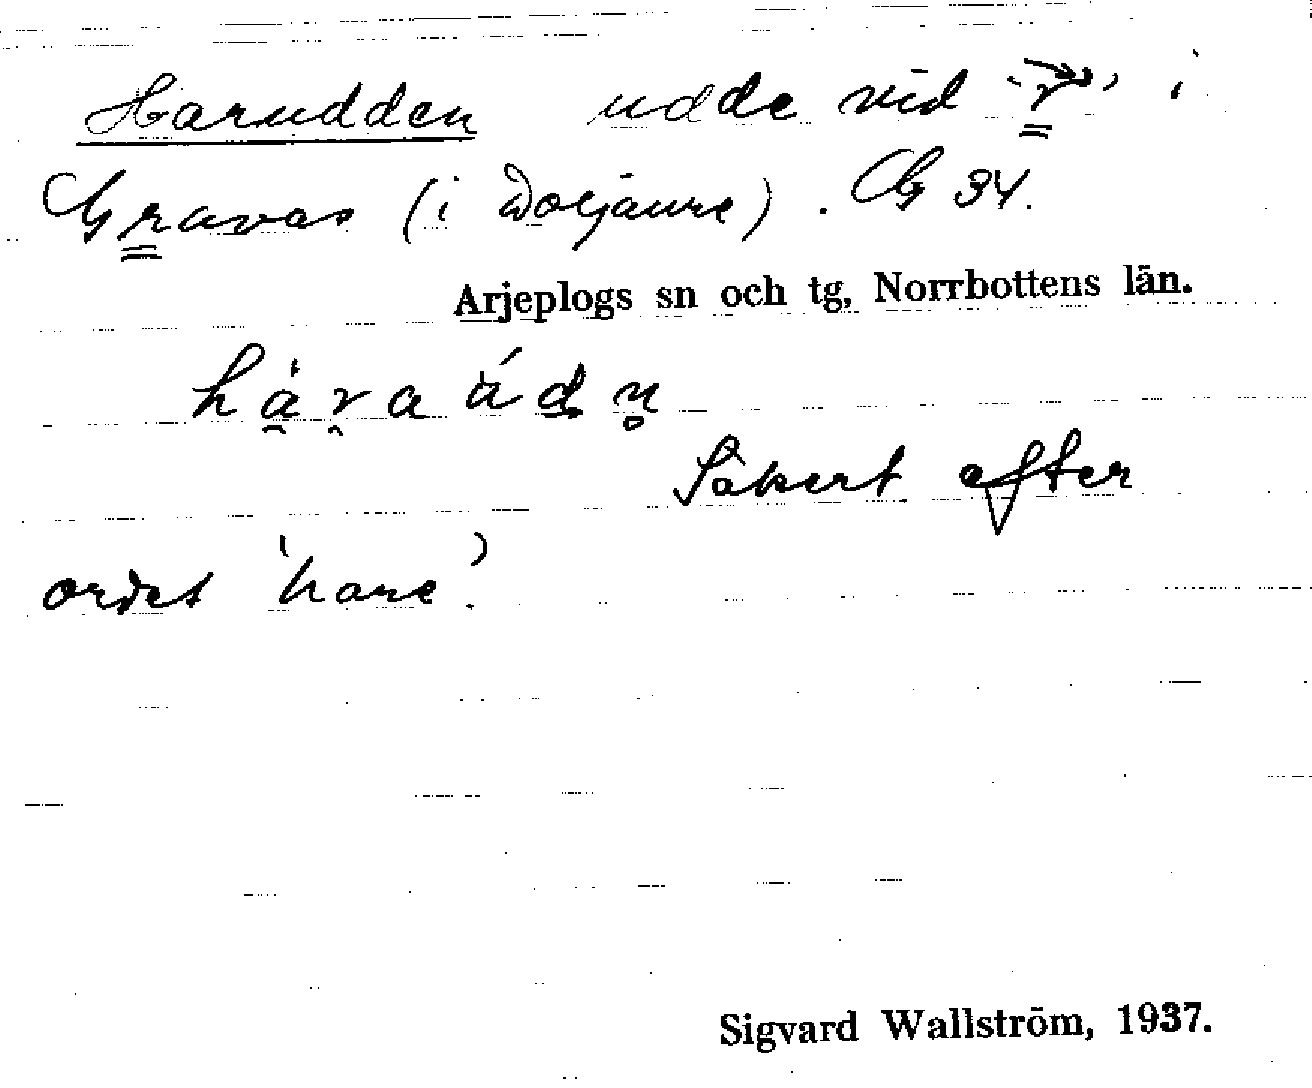 Harudden udde vid "r" i
Gravas (i Doljaure). G 34.
Arjeplogs sn och tg, Norrbottens län.
hàra údn̥
Säkert efter
ordet 'hare'.
Sigvard Wallström, 1937.